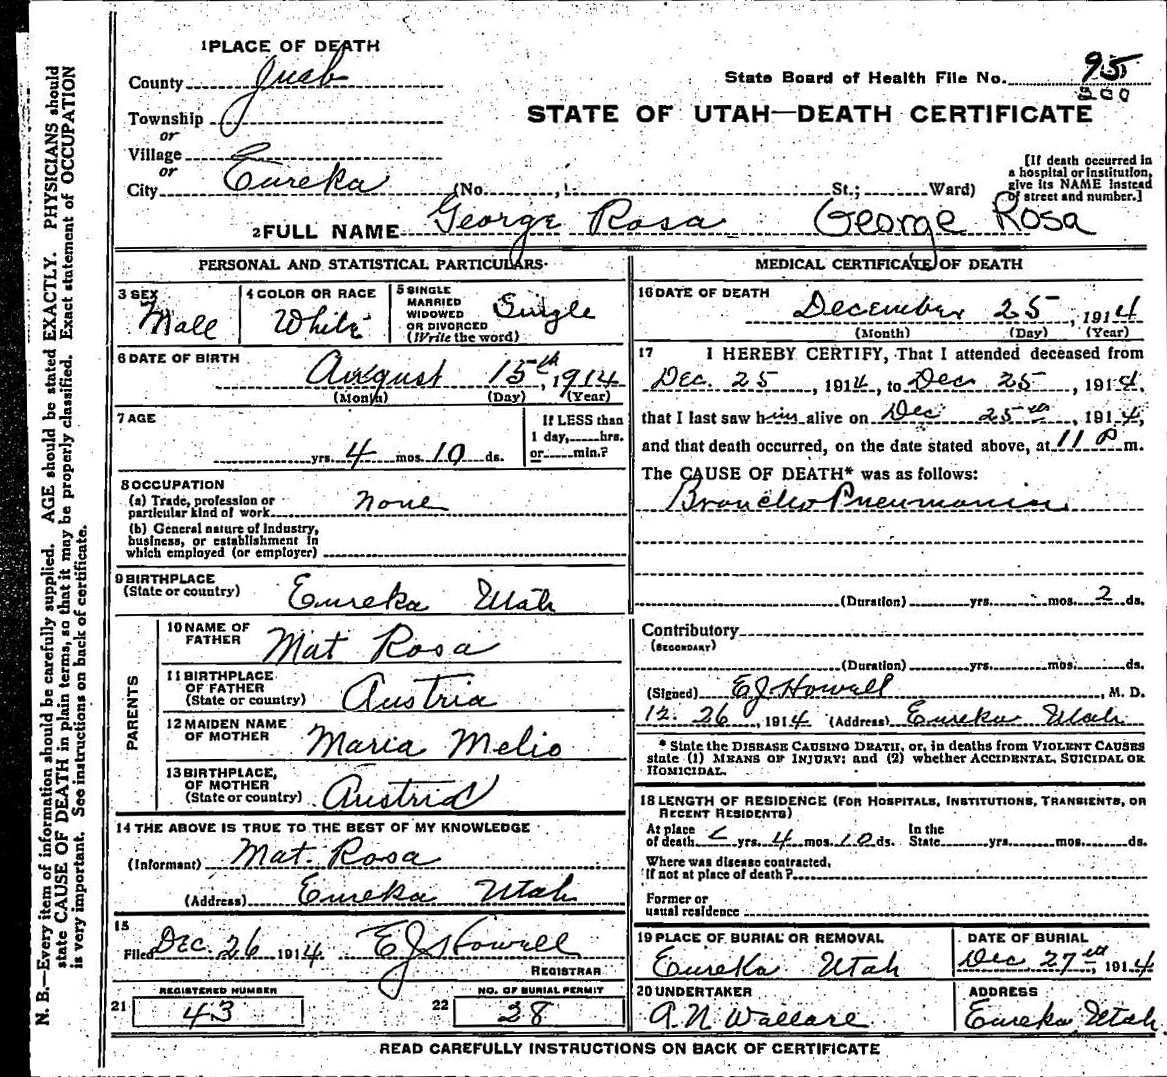 1 PLACE OF DEATH
County Juab
State Board of Health File No. 95
200
STATE OF UTAH—DEATH CERTIFICATE
Township
or
Village
or
City Eureka (No. , St.; Ward)
[If death occurred in
a hospital or institution,
give its NAME instead
of street and number.]
2 FULL NAME George Rosa George Rosa
PERSONAL AND STATISTICAL PARTICULARS
3 SEX
Male
4 COLOR OR RACE
White
5 SINGLE
MARRIED
WIDOWED
OR DIVORCED
(Write the word)
Single
6 DATE OF BIRTH
August 15th, 1914
(Month) (Day) (Year)
7 AGE
yrs. 4 mos. 10 ds.
If LESS than
1 day, hrs.
or min.?
8 OCCUPATION
(a) Trade, profession or
particular kind of work none
(b) General nature of industry,
business, or establishment in
which employed (or employer)
9 BIRTHPLACE
(State or country) Eureka Utah
PARENTS
10 NAME OF
FATHER Mat Rosa
11 BIRTHPLACE
OF FATHER
(State or country) Austria
12 MAIDEN NAME
OF MOTHER Maria Melio
13 BIRTHPLACE,
OF MOTHER
(State or country) Austria
14 THE ABOVE IS TRUE TO THE BEST OF MY KNOWLEDGE
(Informant) Mat. Rosa
(Address) Eureka Utah
15
Filed Dec. 26 1914. EJ Howell
REGISTRAR
REGISTERED NUMBER
21 43
NO. OF BURIAL PERMIT
22 28
MEDICAL CERTIFICATE OF DEATH
16 DATE OF DEATH
December 25, 1914
(Month) (Day) (Year)
17 I HEREBY CERTIFY, That I attended deceased from
Dec. 25, 1914, to Dec 25, 1914,
that I last saw him alive on Dec 25th, 1914,
and that death occurred, on the date stated above, at 11 P m.
The CAUSE OF DEATH* was as follows:
Broncho Pneumonia
(Duration) yrs. mos. 2 ds.
Contributory
(SECONDARY)
(Duration) yrs. mos. ds.
(Signed) EJ Howell, M. D.
12. 26, 1914 (Address) Eureka Utah
* State the DISEASE CAUSING DEATH, or, in deaths from VIOLENT CAUSES
state (1) MEANS OF INJURY; and (2) whether ACCIDENTAL, SUICIDAL OR
HOMICIDAL.
18 LENGTH OF RESIDENCE (FOR HOSPITALS, INSTITUTIONS, TRANSIENTS, OR
RECENT RESIDENTS)
At place
of death yrs. 4 mos. 10 ds.
In the
State yrs. mos. ds.
Where was disease contracted,
if not at place of death?
Former or
usual residence
19 PLACE OF BURIAL OR REMOVAL
Eureka Utah
DATE OF BURIAL
Dec 27th, 1914
20 UNDERTAKER
A. N Wallace
ADDRESS
Eureka, Utah.
READ CAREFULLY INSTRUCTIONS ON BACK OF CERTIFICATE
N. B.—Every item of information should be carefully supplied. AGE should be stated EXACTLY. PHYSICIANS should
state CAUSE OF DEATH in plain terms, so that it may be properly classified. Exact statement of OCCUPATION
is very important. See instructions on back of certificate.